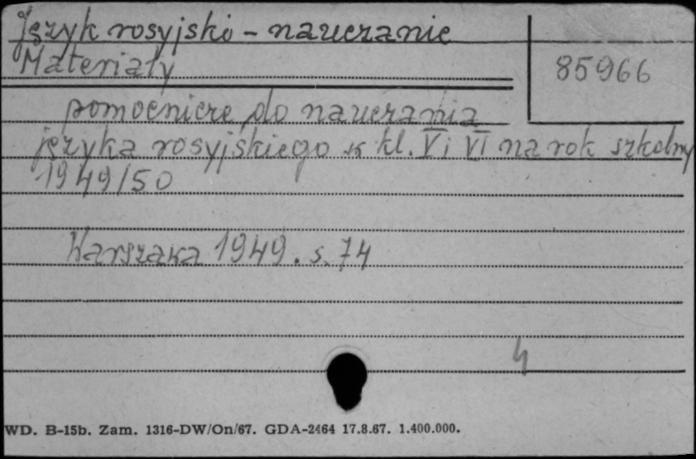 Język rosyjski - nauczanie
Materiały
85966
pomocnicze do nauczania
języka rosyjskiego w kl. V i VI na rok szkolny
1949/50
Warszawa 1949. s. 74
4
WD. B-15b. Zam. 1316-DW/On/67. GDA-2464 17.8.67. 1.400.000.